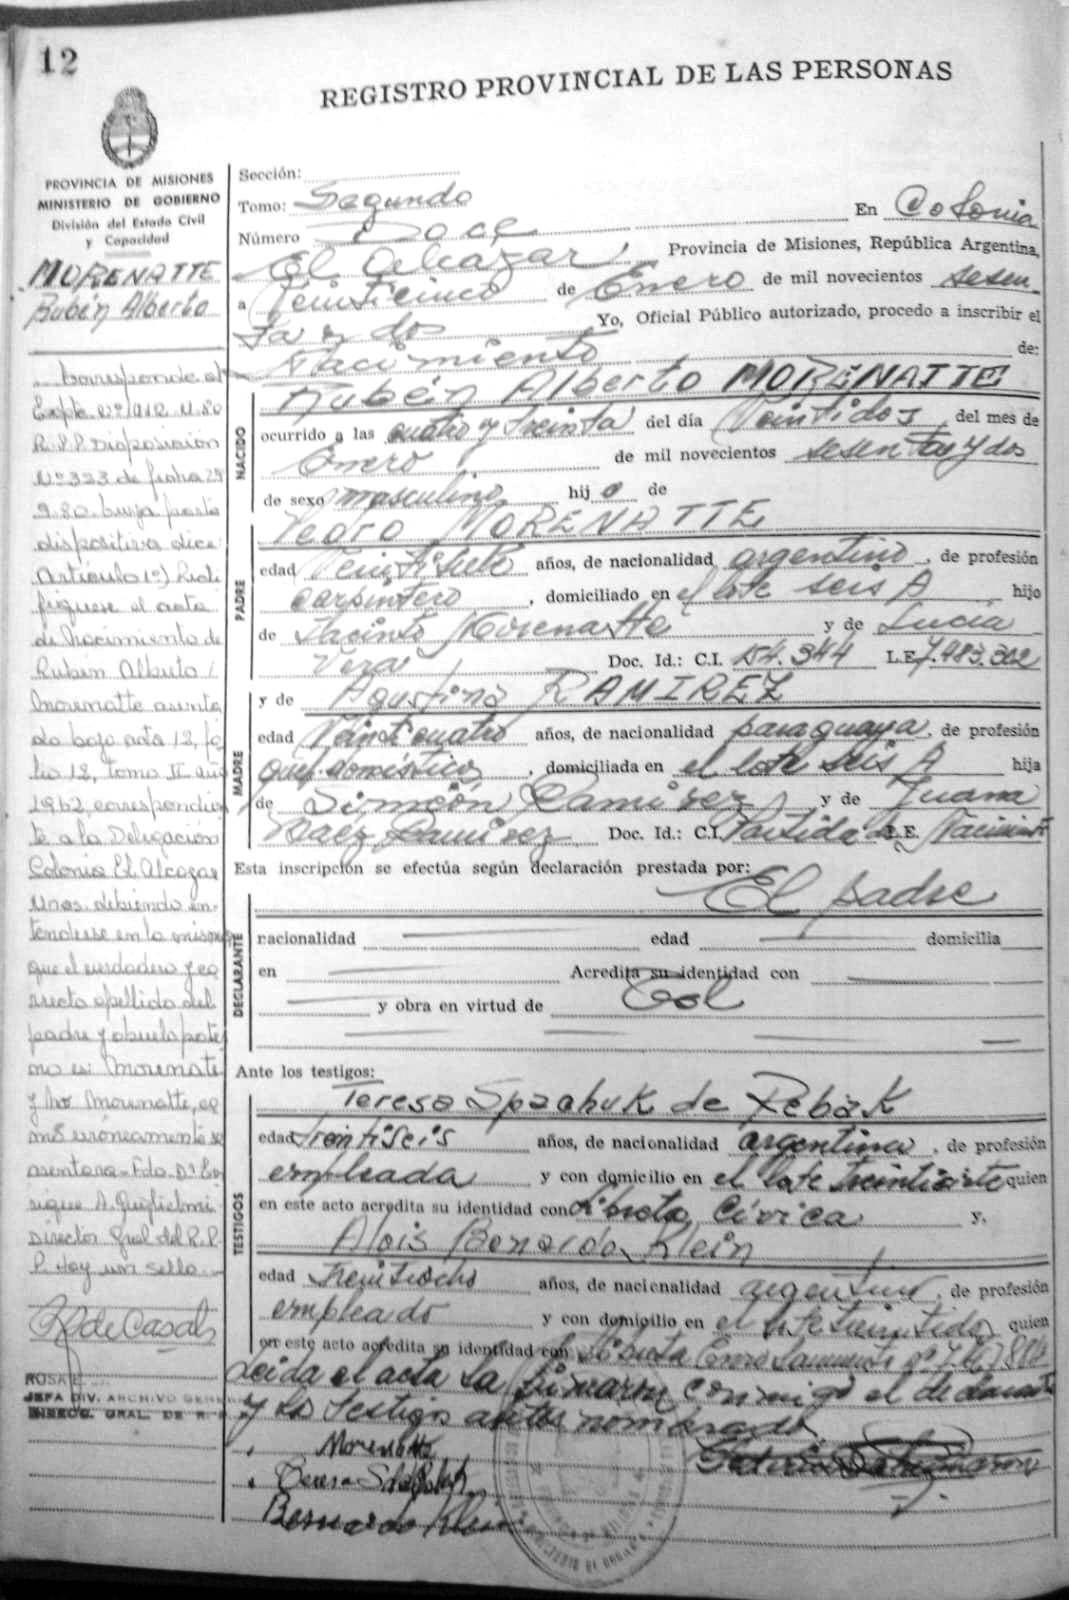 12
REGISTRO PROVINCIAL DE LAS PERSONAS
PROVINCIA DE MISIONES
MINISTERIO DE GOBIERNO
División del Estado Civil
y Capacidad
MORENATTE
Rubén Alberto
Corresponde al
Expte. Nº 1912. M. 80
R.P.P. Disposición
Nº 323 de fecha 29
9.80. cuya parte
dispositiva dice:
Artículo 1º) Recti
fíquese el acta
de Nacimiento de
Rubén Alberto
Morenatte asenta
do bajo acta 12, fo
lio 12, Tomo II año
1962, correspondien
te a la Delegación
Colonia El Alcazar
Mnes. debiendo en-
tenderse en la misma
que el verdadero y co
rrecto apellido del
padre y abuelo pater
no es: Morenate
y no Morenatte, co
mo erróneamente se
asentara - Fdo. Dº En
rique A. Guglielmi
Director Gral del R.P.
P. Hay un sello.
R. de Casals
ROSA
JEFA DIV. ARCHIVO GENERAL
DIRECC. GRAL. DE R.
Sección:
Tomo: Segundo
Número Doce En Colonia
El Alcazar, Provincia de Misiones, República Argentina,
a Veinticinco de Enero de mil novecientos sesen-
ta y dos Yo, Oficial Público autorizado, procedo a inscribir el
Nacimiento de:
Rubén Alberto MORENATTE
NACIDO
ocurrido a las cuatro y treinta del día Veintidos del mes de
Enero de mil novecientos sesenta y dos
de sexo masculino hijo de
Pedro MORENATTE
PADRE
edad Veintisiete años, de nacionalidad argentino, de profesión
carpintero, domiciliado en el lote seis A hijo
de Jacinto Morenatte y de Lucía
Vera Doc. Id.: C.I. 154.344 L.E. 7.483.302
y de Agustina RAMIREZ
MADRE
edad Veinticuatro años, de nacionalidad paraguaya, de profesión
queh. domésticos, domiciliada en el lote seis A hija
de Simeón Ramirez y de Juana
Baéz Ramirez Doc. Id.: C.I. Partida de L.E. Nacimiento
Esta inscripción se efectúa según declaración prestada por:
El padre
DECLARANTE
nacionalidad edad domicilia
en Acredita su identidad con
y obra en virtud de
Ante los testigos:
Teresa Spachuk de Rebak
TESTIGOS
edad treintiseis años, de nacionalidad argentina, de profesión
empleada y con domicilio en el lote treintisiete quien
en este acto acredita su identidad con Libreta Cívica y,
Alois Bernardo Klein
edad treintiocho años, de nacionalidad argentino, de profesión
empleado y con domicilio en el lote treintidos quien
en este acto acredita su identidad con Libreta Enrolamiento nº
Leida el acta la firmaron conmigo el declarante
y los testigos antes nombrados.
Morenatte
Bernardo Klein